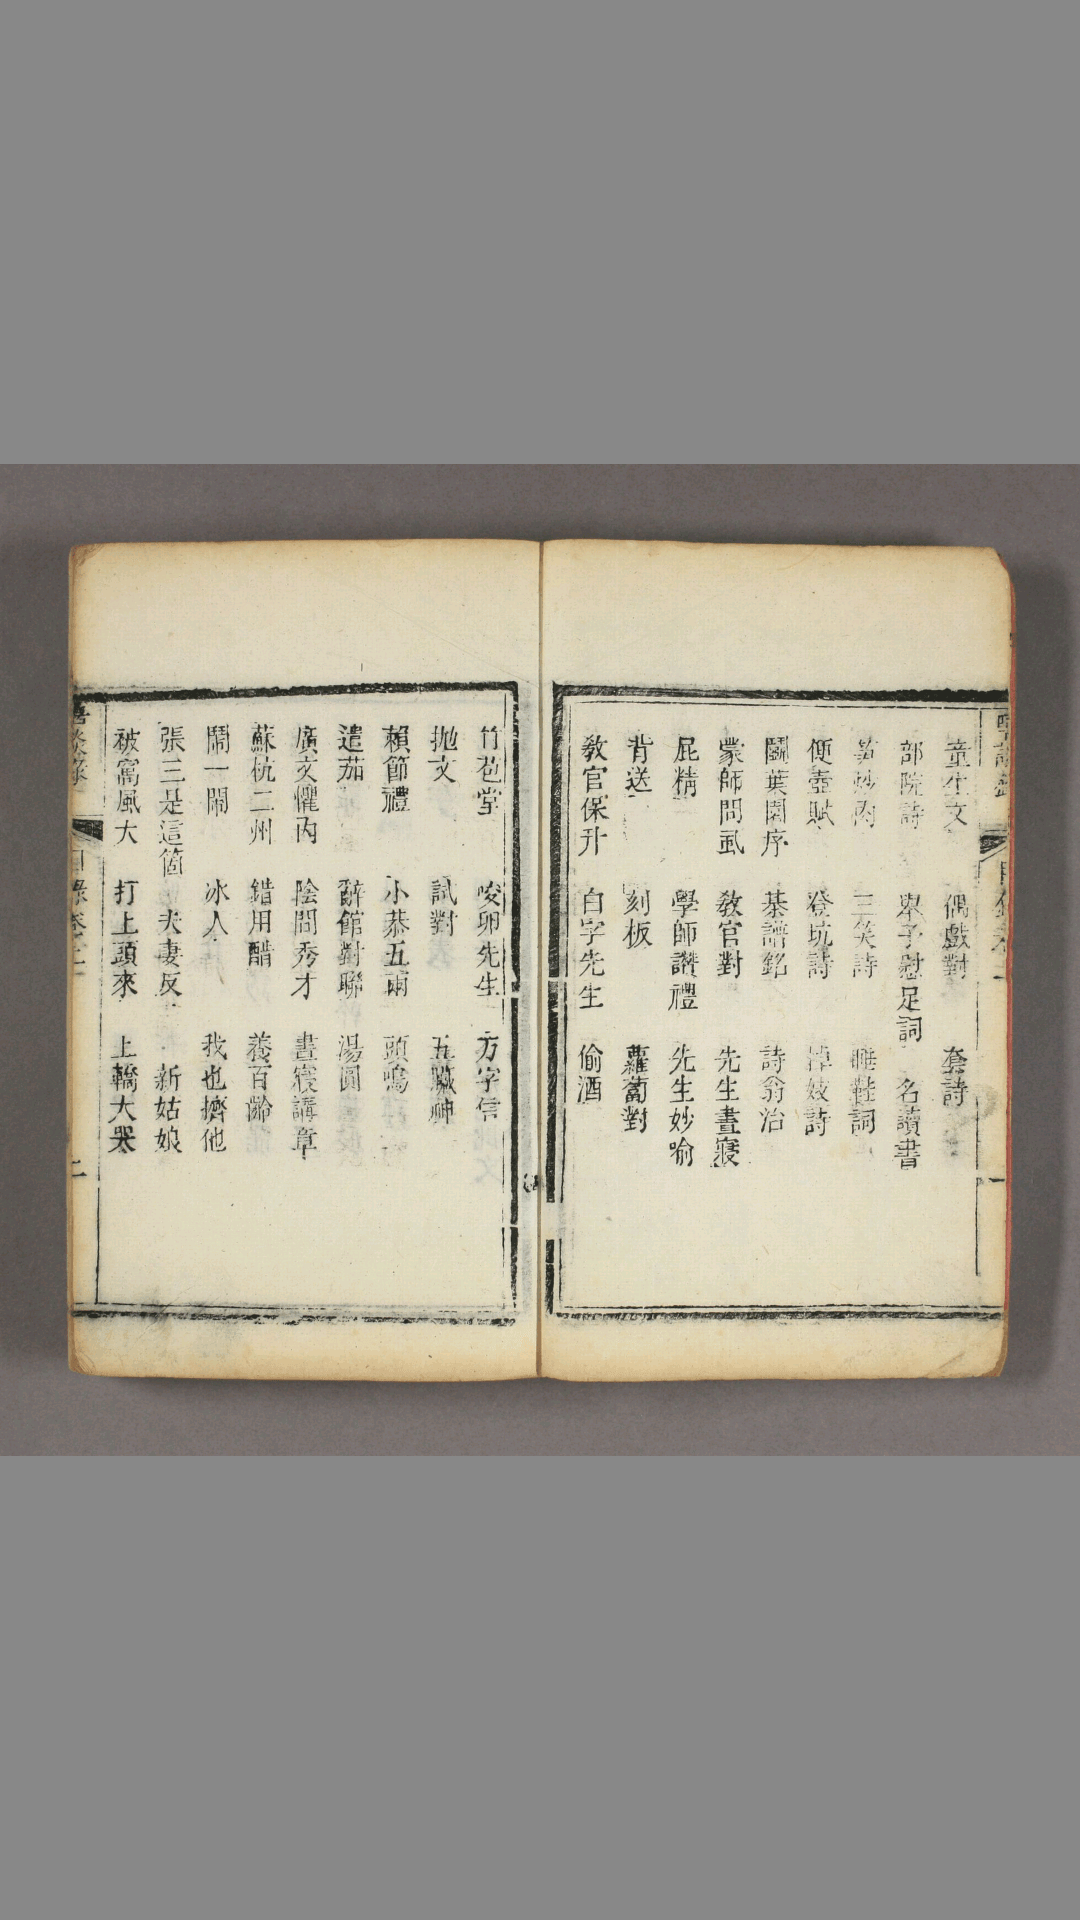 童生文 偶戲對 套詩
部院詩 舉子慰足詞 名讀書
笋炒肉 三笑詩 睡鞋詞
便壺賦 登坑詩 悼妓詩
鬭葉圖序 棊譜銘 詩翁治
蒙師問虱 教官對 先生晝寢
屁精 學師讚禮 先生妙喻
背送 刻板 蘿蔔對
教官保升 白字先生 偷酒
竹苞堂 唆卵先生 方字信
拋文 試對 五臟神
賴節禮 小恭五兩 頭鳴
遣茄 辭館對聯 湯圓
廣文懼內 陰間秀才 晝寢講章
蘇杭二州 錯用醋 養百齡
鬧一鬧 冰人 我也擠他
張三是這箇 夫妻反 新姑娘
被窩風大 打上頭來 上轎大哭
目錄卷之二
二